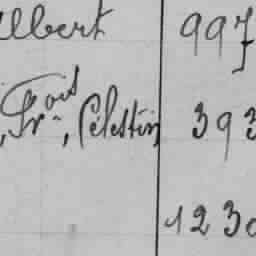 Albert 997
, Fr^ois, Célestin 393
1230